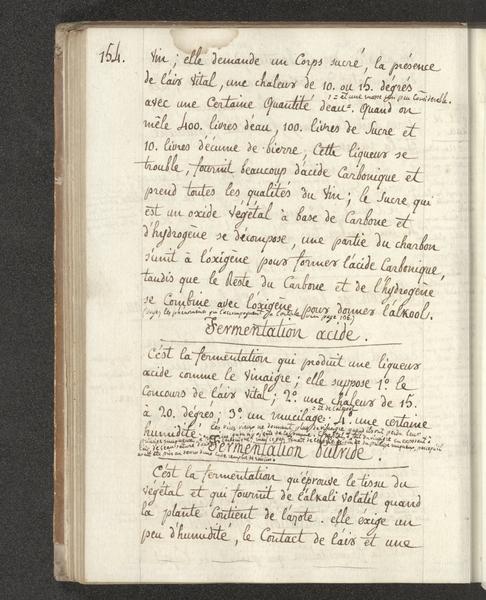 154.
vin ; elle demande un Corps sucré, la présence
de l'air vital, une chaleur de 10. ou 15. dégrés
= et une masse un peu Considerable.
avec une Certaine Quantité d'eau =. Quand on
mêle 400. livres d'eau, 100. livres de Sucre et
10. livres d'écume de bierre, Cette liqueur se
trouble, fournit beaucoup d'acide Carbonique et
prend toutes les qualités du Vin ; le Sucre qui
est un oxide végétal à base de Carbone et
d'hydrogène se décompose, une partie du charbon
s'unit à l'oxigène pour former l'acide Carbonique,
tandis que le Reste du Carbone et de l'hydrogène
se Combine avec l'oxigène pour donner l'alkool.
Fermentation acide.
C'est la fermentation qui produit une liqueur
acide comme le vinaigre ; elle suppose 1.° le
Concours de l'air vital ; 2.° une chaleur de 15.
à 20. dégres ; 3.° un mucilage. 4.° une certaine
humidité.
Fermentation Putride.
C'est la fermentation qu'éprouve le tissu du
végétal et qui fournit de l'alkali volatil quand
la plante Contient de l'azote. elle exige un
peu d'humidité, le Contact de l'air et une